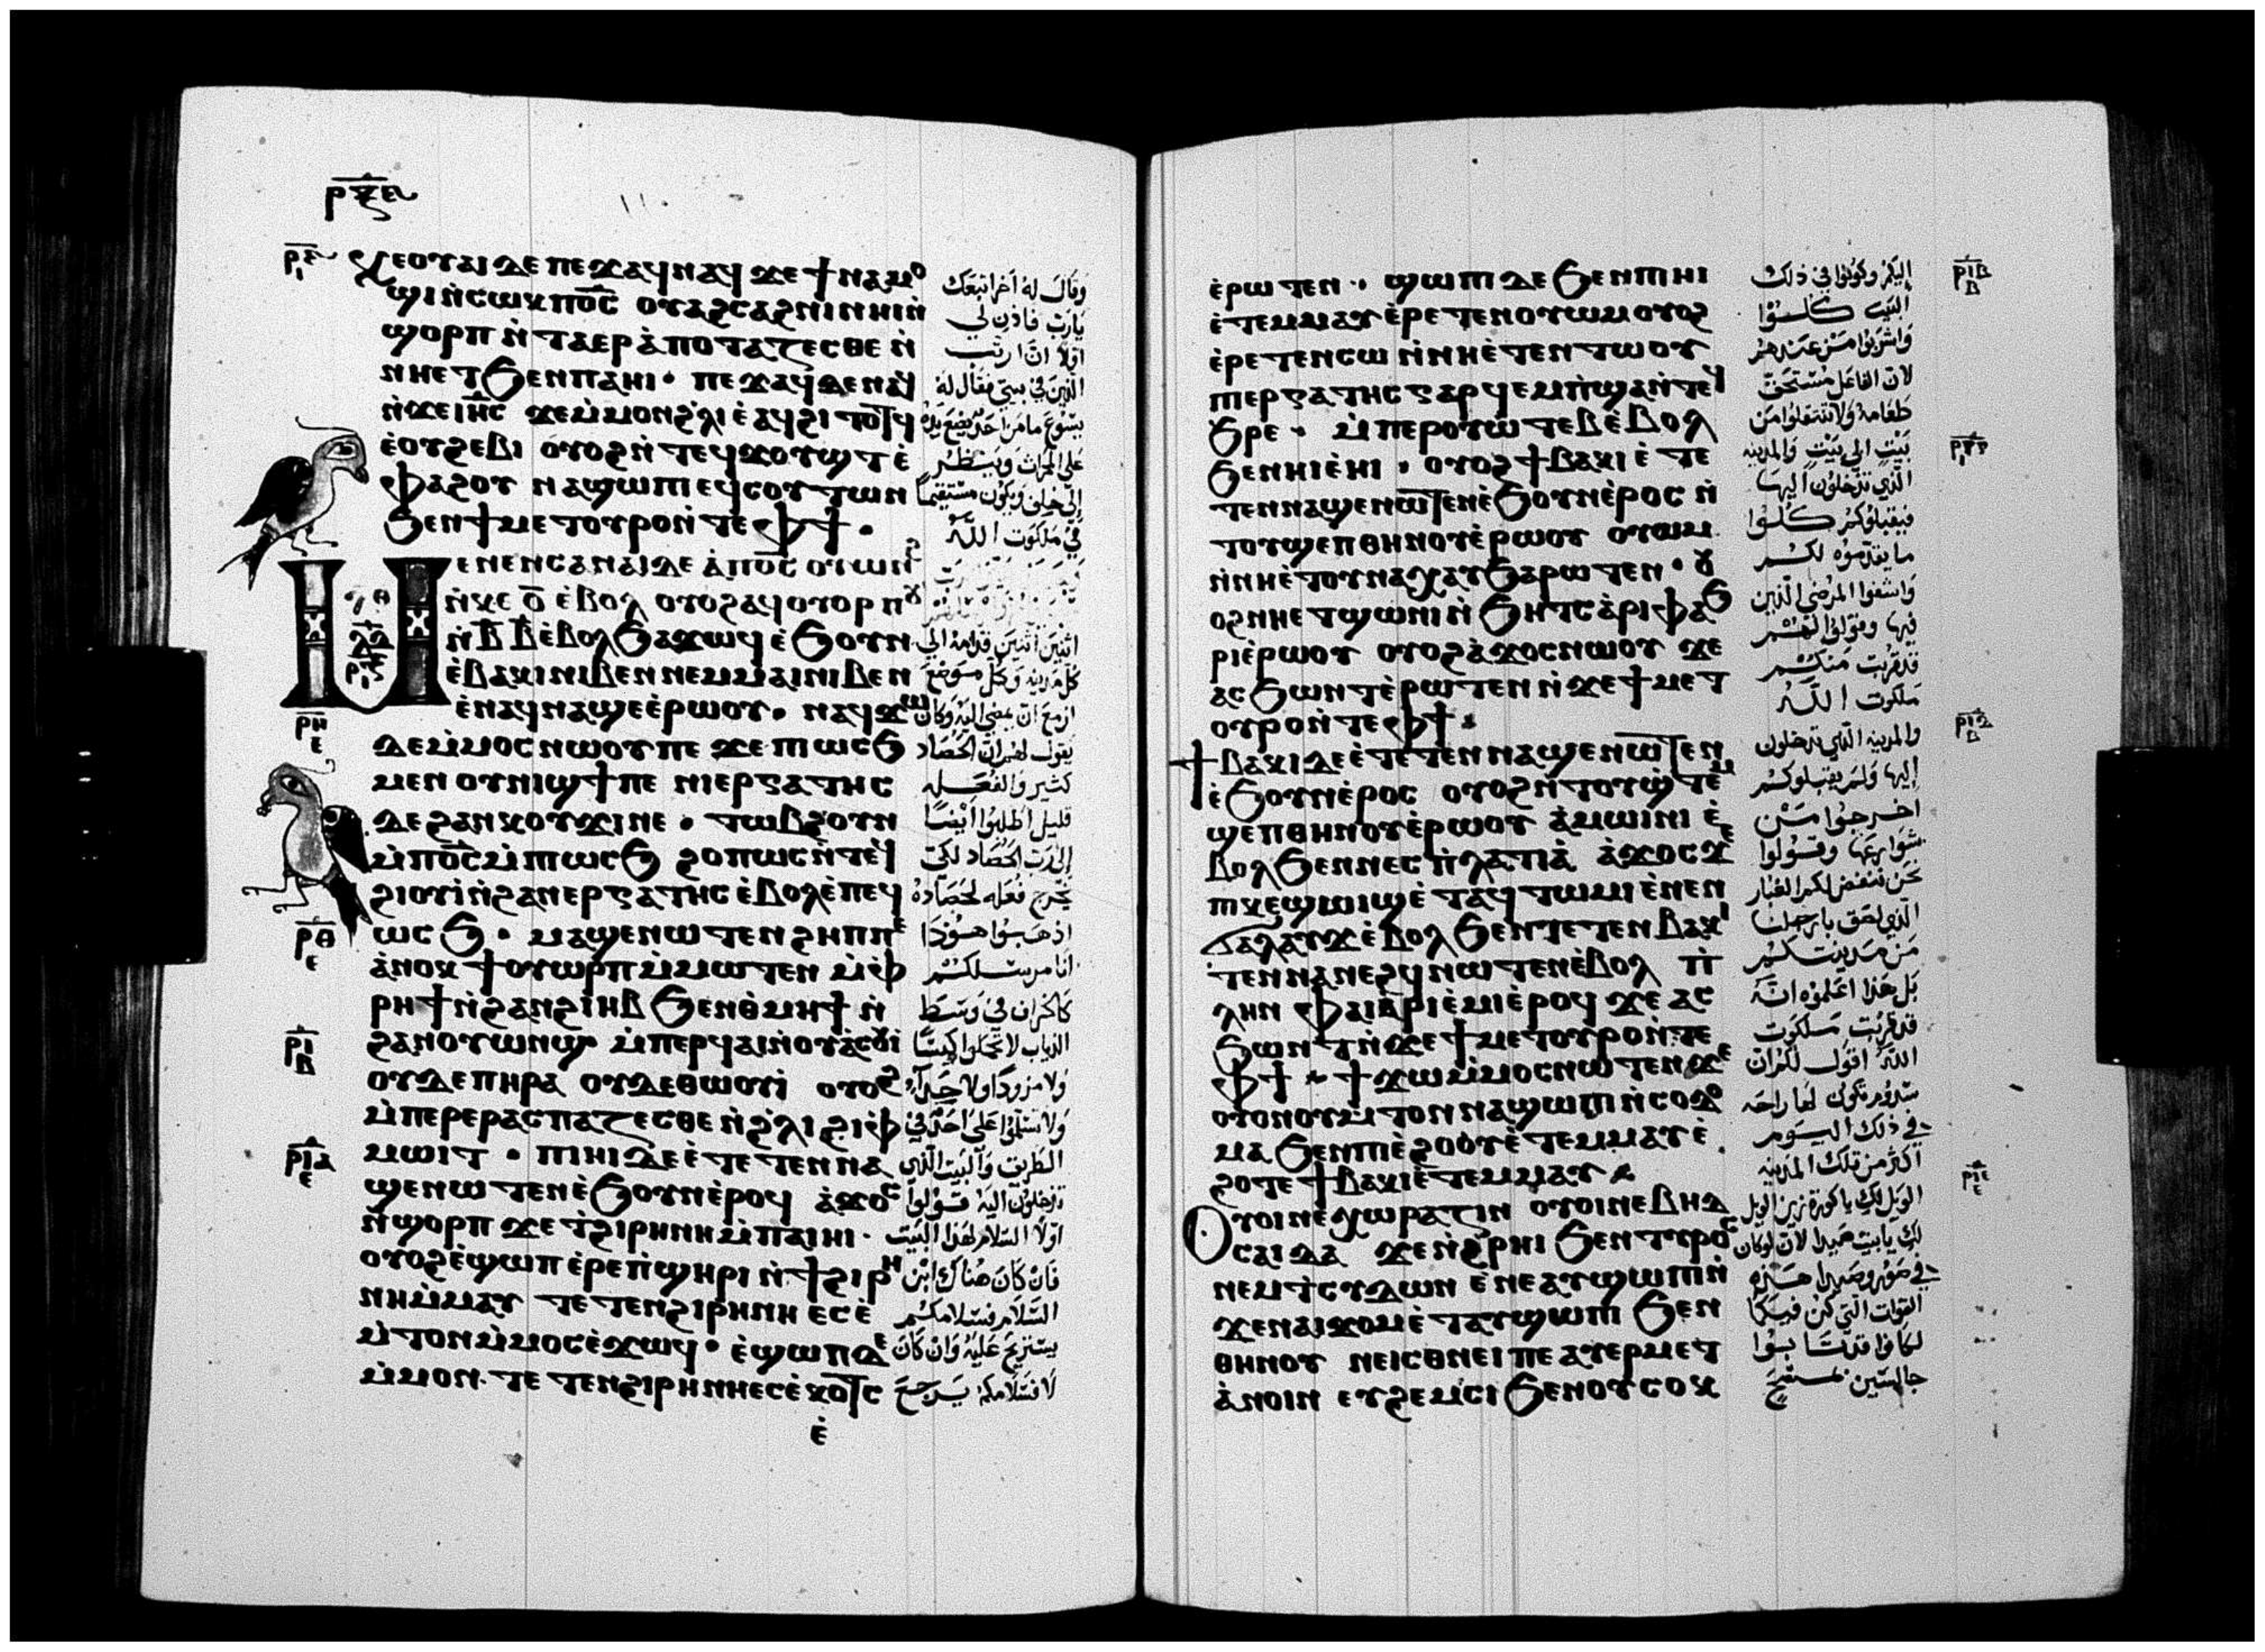 ⲣⲝⲉ
ⲕⲉⲟⲩⲁⲓ ⲇⲉ ⲡⲉϫⲁϥ ⲛⲁϥ ϫⲉ ϯⲛⲁⲙⲟ
ϣⲓ ⲛ̀ⲥⲱⲕ ⲡⲟ̅ⲥ̅ ⲟⲩⲁϩⲥⲁϩⲛⲓ ⲛⲏⲓ ⲛ̀
ϣⲟⲣⲡ ⲛ̀ⲧⲁⲉⲣⲁ̀ⲡⲟⲧⲁⲍⲉⲥⲑⲉ ⲛ̀
ⲛⲏⲉⲧϧⲉⲛ ⲡⲁⲏⲓ · ⲡⲉϫⲁϥ ⲇⲉ ⲛⲁϥ
ⲛ̀ϫⲉ ⲓⲏ̅ⲥ̅ ϫⲉ ⲙ̀ⲙⲟⲛ ϩ̀ⲗⲓ ⲉ̀ⲁϥϩⲓ ⲧⲟⲧϥ
ⲉ̀ⲟⲩϩⲉⲃⲓ ⲟⲩⲟϩ ⲛ̀ⲧⲉϥϫⲟⲩϣⲧ ⲉ̀
ⲫⲁϩⲟⲩ ⲛⲁϣⲱⲡⲓ ⲉϥⲥⲟⲩⲧⲱⲛ
ϧⲉⲛ ϯⲙⲉⲧⲟⲩⲣⲟ ⲛ̀ⲧⲉ ⲫϯ ·
ⲙⲉⲛⲉⲛⲥⲁ ⲛⲁⲓ ⲇⲉ ⲁ̀ ⲡⲟ̅ⲥ̅ ⲟⲩⲱⲛϩ
ⲛ̀ⲕⲉ ⲟ̅ ⲉ̀ⲃⲟⲗ ⲟⲩⲟϩ ⲁϥⲟⲩⲟⲣⲡⲟⲩ
ⲛ̀ⲃ̅ ⲃ̅ ⲉ̀ⲃⲟⲗ ϧⲁϫⲱϥ ⲉ̀ϧⲟⲩⲛ
ⲉ̀ⲃⲁⲕⲓ ⲛⲓⲃⲉⲛ ⲛⲉⲙ ⲙⲁⲓ ⲛⲓⲃⲉⲛ
ⲉ̀ⲛⲁϥⲛⲁϣⲉ ⲉ̀ⲣⲱⲟⲩ · ⲛⲁϥϫⲱ
ⲇⲉ ⲙ̀ⲙⲟⲥ ⲛⲱⲟⲩ ⲡⲉ ϫⲉ ⲡⲓⲱⲥϧ
ⲙⲉⲛ ⲟⲩⲛⲓϣϯ ⲡⲉ ⲛⲓⲉⲣⲅⲁⲧⲏⲥ
ⲇⲉ ϩⲁⲛⲕⲟⲩϫⲓ ⲛⲉ · ⲧⲱⲃϩ ⲟⲩⲛ
ⲙ̀ⲡⲟ̅ⲥ̅ ⲙ̀ⲡⲓⲱⲥϧ ϩⲟⲡⲱⲥ ⲛ̀ⲧⲉϥ
ϩⲓⲟⲩⲓ̀ ⲛ̀ϩⲁⲛⲉⲣⲅⲁⲧⲏⲥ ⲉ̀ⲃⲟⲗ ⲉ̀ⲡⲉϥ
ⲱⲥϧ · ⲙⲁϣⲉⲛⲱⲧⲉⲛ ϩⲏⲡⲡⲉ
ⲁ̀ⲛⲟⲕ ϯⲟⲩⲱⲣⲡ ⲙ̀ⲙⲱⲧⲉⲛ ⲙ̀ⲫ
ⲣⲏϯ ⲛ̀ϩⲁⲛϩⲓⲏⲃ ϧⲉⲛ ⲑⲙⲏϯ ⲛ̀
ϩⲁⲛⲟⲩⲱⲛϣ ⲙ̀ⲡⲉⲣϥⲁⲓ ⲛ̀ⲟⲩⲁ̀ⲥⲟⲩⲓ
ⲟⲩⲇⲉ ⲡⲏⲣⲁ ⲟⲩⲇⲉ ⲑⲱⲟⲩⲓ̀ ⲟⲩⲟϩ
ⲙ̀ⲡⲉⲣⲉⲣⲁⲥⲡⲁⲍⲉⲥⲑⲉ ⲛ̀ϩ̀ⲗⲓ ϩⲓ ⲫ
ⲙⲱⲓⲧ · ⲡⲓⲏⲓ ⲇⲉ ⲉ̀ⲧⲉⲧⲉⲛⲛⲁ
ϣⲉⲛⲱⲧⲉⲛ ⲉ̀ϧⲟⲩⲛ ⲉ̀ⲣⲟϥ ⲁ̀ϫⲟⲥ
ⲛ̀ϣⲟⲣⲡ ϫⲉ ⲧ̀ϩⲓⲣⲏⲛⲏ ⲙ̀ⲡⲁⲓⲏⲓ ·
ⲟⲩⲟϩ ⲉ̀ϣⲱⲡ ⲉ̀ⲣⲉ ⲡ̀ϣⲏⲣⲓ ⲛ̀ϯϩⲓⲣⲏ
ⲛⲏ ⲙ̀ⲙⲁⲩ ⲧⲉⲧⲉⲛϩⲓⲣⲏⲛⲏ ⲉⲥⲉ̀
ⲙ̀ⲧⲟⲛ ⲙ̀ⲙⲟⲥ ⲉ̀ϫⲱϥ · ⲉ̀ϣⲱⲡ ⲇⲉ
ⲙ̀ⲙⲟⲛ ⲧⲉⲧⲉⲛϩⲓⲣⲏⲛⲏ ⲉⲥⲉ̀ⲕⲟⲧⲥ
ⲉ̀
وقال له اخر اتبعك
يا رب فاذن لي
اولا ان ارتب
الذين في بيتي فقال له
يسوع ما من احد يضع يده
على المحراث وينظر
إلى خلف ويكون مستقيما
في ملكوت الله
اثنين اثنين قدامه الى
كل مدينه وكل موضع
ازمع ان يمضي اليه وكان
يقول لهم ان الحصاد
كثير والفعله
قليل اطلبوا ايضا
إلى رب الحصاد لكي
يخرج فعله لحصاده
اذهبوا هوذا
انا مرسلكم
كالخراف في وسط
الذياب لا تحملوا كيسا
ولا مزودا ولا حذاء
ولا تسلموا على احد في
الطريق والبيت الذي
تدخلون اليه قولوا
اولا السلام لهذا البيت
فان كان هناك ابن
السلام فسلامكم
يستريح عليه وان كان
لا فسلامكم يرجع
ⲉ̀ⲣⲱⲧⲉⲛ · ϣⲱⲡⲓ ⲇⲉ ϧⲉⲛ ⲡⲓⲏⲓ
ⲉ̀ⲧⲉⲙⲙⲁⲩ ⲉ̀ⲣⲉⲧⲉⲛⲟⲩⲱⲙ ⲟⲩⲟϩ
ⲉ̀ⲣⲉⲧⲉⲛⲥⲱ ⲛ̀ⲛⲏⲉ̀ⲧⲉⲛⲧⲱⲟⲩ
ⲡⲓⲉⲣⲅⲁⲧⲏⲥ ⲅⲁⲣ ϥⲉⲙⲡ̀ϣⲁ ⲛ̀ⲧⲉϥ
ϧⲣⲉ · ⲙ̀ⲡⲉⲣⲟⲩⲱⲧⲉⲃ ⲉ̀ⲃⲟⲗ
ϧⲉⲛ ⲏⲓ ⲉ̀ⲏⲓ · ⲟⲩⲟϩ ϯⲃⲁⲕⲓ ⲉ̀ⲧⲉ
ⲧⲉⲛⲛⲁϣⲉⲛⲱⲧⲉⲛ ⲉ̀ϧⲟⲩⲛ ⲉ̀ⲣⲟⲥ ⲛ̀
ⲧⲟⲩϣⲉⲡ ⲑⲏⲛⲟⲩ ⲉ̀ⲣⲱⲟⲩ ⲟⲩⲱⲙ
ⲛ̀ⲛⲏⲉ̀ⲧⲟⲩⲛⲁⲭⲁⲩ ϧⲁⲣⲱⲧⲉⲛ · ⲟⲩ
ⲟϩ ⲛⲏⲉⲧϣⲱⲛⲓ ⲛ̀ϧⲏⲧⲥ ⲁ̀ⲣⲓⲫⲁϧ
ⲣⲓ ⲉ̀ⲣⲱⲟⲩ ⲟⲩⲟϩ ⲁ̀ϫⲟⲥ ⲛⲱⲟⲩ ϫⲉ
ⲁⲥϧⲱⲛⲧ ⲉ̀ⲣⲱⲧⲉⲛ ⲛ̀ϫⲉ ϯⲙⲉⲧ
ⲟⲩⲣⲟ ⲛ̀ⲧⲉ ⲫϯ ·
ϯⲃⲁⲕⲓ ⲇⲉ ⲉ̀ⲧⲉⲧⲉⲛⲛⲁϣⲉⲛⲱⲧⲉⲛ
ⲉ̀ϧⲟⲩⲛ ⲉ̀ⲣⲟⲥ ⲟⲩⲟϩ ⲛ̀ⲧⲟⲩϣⲧⲉⲙ
ϣⲉⲡ ⲑⲏⲛⲟⲩ ⲉ̀ⲣⲱⲟⲩ ⲁ̀ⲙⲱⲓⲛⲓ ⲉ̀
ⲃⲟⲗ ϧⲉⲛ ⲛⲉⲥⲡ̀ⲗⲁⲧⲓⲁ̀ ⲁ̀ϫⲟⲥ ϫⲉ
ⲡⲓⲕⲉϣⲱⲓϣ ⲉ̀ⲧⲁϥⲧⲱⲙⲓ ⲉ̀ⲛⲉⲛ
ϭⲁⲗⲁⲩϫ ⲉ̀ⲃⲟⲗ ϧⲉⲛ ⲧⲉⲧⲉⲛⲃⲁⲕⲓ
ⲧⲉⲛⲛⲁⲛⲉϩϥ ⲛⲱⲧⲉⲛ ⲉ̀ⲃⲟⲗ ⲡ̀
ⲗⲏⲛ ⲫⲁⲓ ⲁⲣⲓⲉ̀ⲙⲓ ⲉ̀ⲣⲟϥ ϫⲉ ⲁⲥ
ϧⲱⲛⲧ ⲛ̀ϫⲉ ϯⲙⲉⲧⲟⲩⲣⲟ ⲛ̀ⲧⲉ
ⲫϯ · ϯϫⲱ ⲙ̀ⲙⲟⲥ ⲛⲱⲧⲉⲛ ϫⲉ
ⲟⲩⲟⲛ ⲟⲩⲙ̀ⲧⲟⲛ ⲛⲁϣⲱⲡⲓ ⲛ̀ⲥⲟⲇⲟ
ⲙⲁ ϧⲉⲛ ⲡⲓⲉ̀ϩⲟⲟⲩ ⲉ̀ⲧⲉⲙⲙⲁⲩ ⲉ̀
ϩⲟⲧⲉ ϯⲃⲁⲕⲓ ⲉ̀ⲧⲉⲙⲙⲁⲩ
ⲟⲩⲟⲓ ⲛⲉ ⲭⲱⲣⲁⲍⲓⲛ ⲟⲩⲟⲓ ⲛⲉ ⲃⲏⲇ
ⲥⲁⲓⲇⲁ ϫⲉ ⲛ̀ϩ̀ⲣⲏⲓ ϧⲉⲛ ⲧⲩⲣⲟⲥ
ⲛⲉⲙ ⲧ̀ⲥⲩⲇⲱⲛ ⲉ̀ⲛⲉ ⲁⲩϣⲱⲡⲓ ⲛ̀
ϫⲉ ⲛⲁⲓϫⲟⲙ ⲉ̀ⲧⲁⲩϣⲱⲡⲓ ϧⲉⲛ
ⲑⲏⲛⲟⲩ ⲛⲉ ⲓⲥ ⲑⲛⲉⲓ ⲡⲉ ⲁⲩⲉⲣⲙⲉⲧ
ⲁ̀ⲛⲟⲓⲛ ⲉⲩϩⲉⲙⲥⲓ ϧⲉⲛ ⲟⲩⲥⲟⲕ
إليكم وكونوا في ذلك
البيت كلوا
واشربوا من عندهم
لان الفاعل مستحق
طعامه ولا تنتقلوا من
بيت الى بيت والمدينه
الذي تدخلون اليها
فيقبلوكم كلوا
ما يقدموه لكم
واشفوا المرضى الذين
فيها وقولوا لهم
قد قربت منكم
ملكوت الله
والمدينه التي تدخلون
إليها ولم يقبلوكم
اخرجوا من
شوارعها وقولوا
نحن ننفض لكم الغبار
الذي لصق بارجلنا
من مدينتكم
بل هذا اعلموه انه
قد قربت ملكوت
الله اقول لكم ان
سدوم تكون لها راحه
في ذلك اليوم
اكثر من تلك المدينه
الويل لك يا كورزين الويل
لك يا بيت صيدا لان لو كان
في صور وصيدا هذه
القوات التي كن فيكما
لكانوا قد تابوا
جالسين بمسح